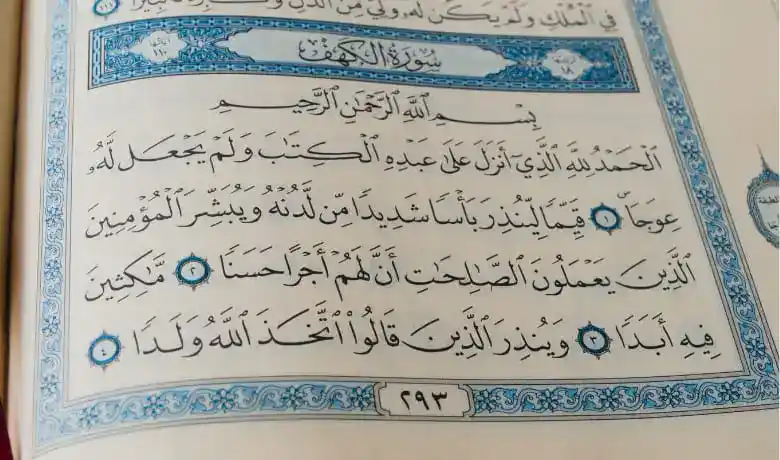 فِي ٱلۡمُلۡكِ وَلَمۡ يَكُن لَّهُۥ وَلِيّٞ مِّنَ ٱلذُّلِّۖ وَكَبِّرۡهُ تَكۡبِيرَۢا ١١١
سُورَةُ الكَهۡفِ
بِسۡمِ ٱللَّهِ ٱلرَّحۡمَٰنِ ٱلرَّحِيمِ
ٱلۡحَمۡدُ لِلَّهِ ٱلَّذِيٓ أَنزَلَ عَلَىٰ عَبۡدِهِ ٱلۡكِتَٰبَ وَلَمۡ يَجۡعَل لَّهُۥ
عِوَجَاۜ ١ قَيِّمٗا لِّيُنذِرَ بَأۡسٗا شَدِيدٗا مِّن لَّدُنۡهُ وَيُبَشِّرَ ٱلۡمُؤۡمِنِينَ
ٱلَّذِينَ يَعۡمَلُونَ ٱلصَّٰلِحَٰتِ أَنَّ لَهُمۡ أَجۡرًا حَسَنٗا ٢ مَّٰكِثِينَ
فِيهِ أَبَدٗا ٣ وَيُنذِرَ ٱلَّذِينَ قَالُواْ ٱتَّخَذَ ٱللَّهُ وَلَدٗا ٤
٢٩٣